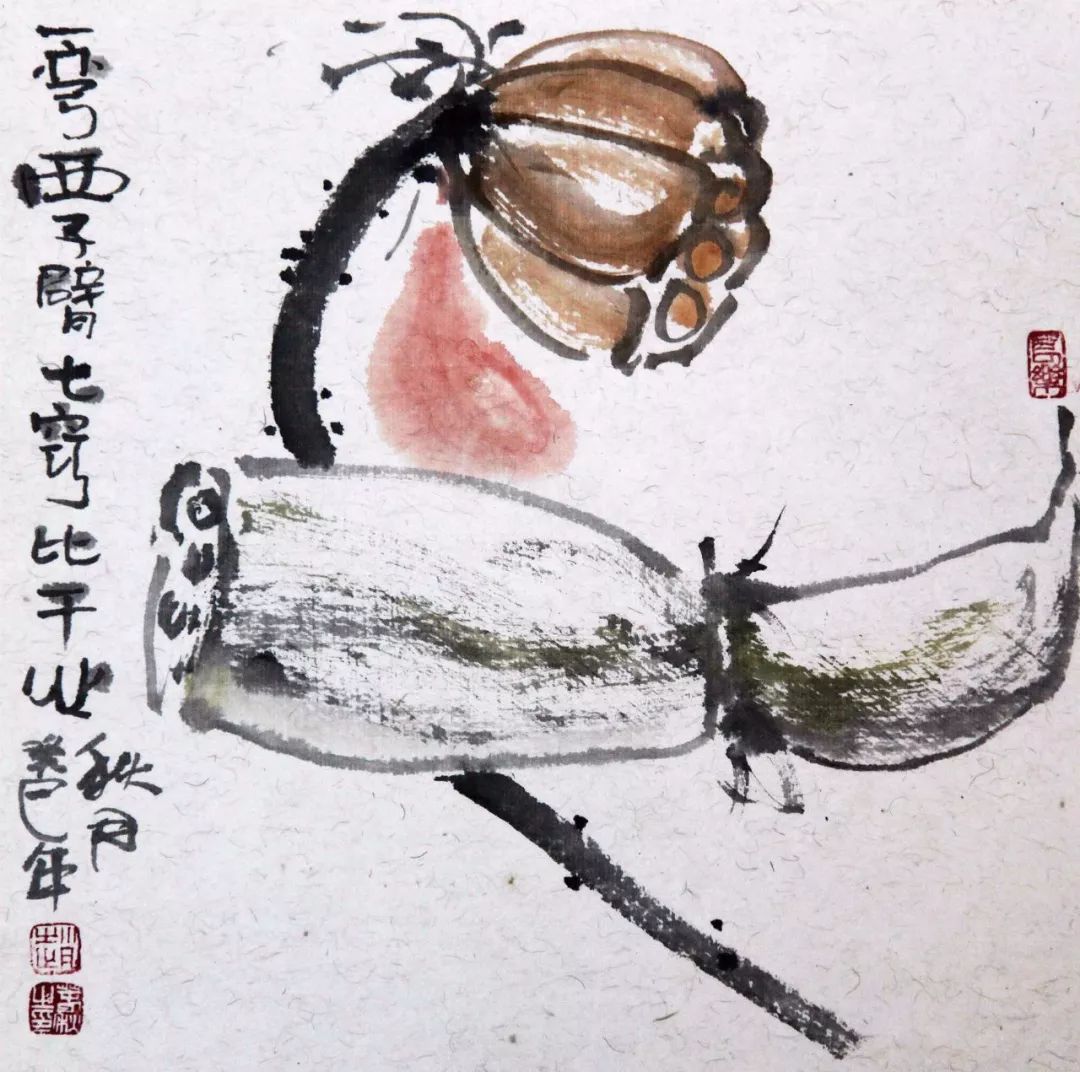 一弯西子臂七窍比干心
癸巳年
秋月